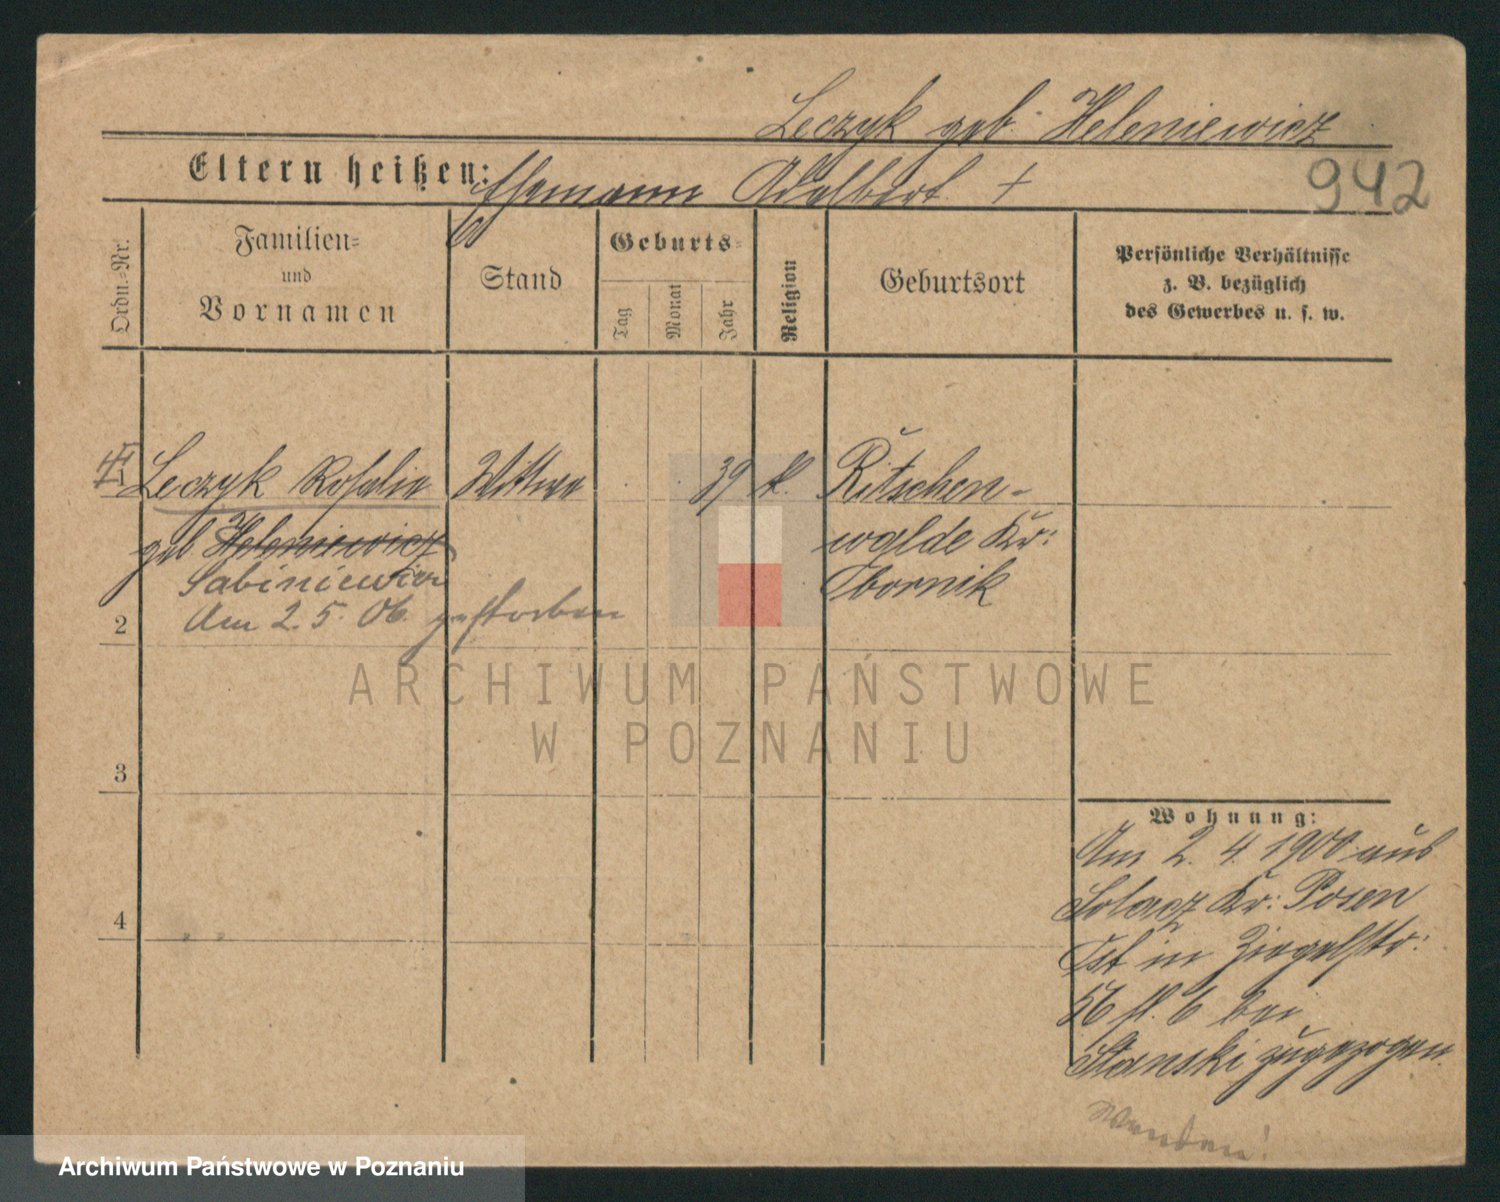 Leczyk geb. Heleniewicz
Eltern heißen: Ehemann Adalbert +
942
Ordn.-Nr.
Familien-
und
Vornamen
Stand
Geburts-
Tag
Monat
Jahr
Religion
Geburtsort
Persönliche Verhältnisse
z. B. bezüglich
des Gewerbes u. s. w.
1 Leczyk Rosalie Wittwe 39 k. Ritschen-
geb Heleniewicz walde Kr:
Sabiniewicz Obornik
Am 2.5.06. gestorben
2
3
4
Wohnung:
Am 2. 4. 1900 aus
Solacz Kr: Posen
in Ziegelstr:
bei
Stanski zugezogen.
Wenden!
ARCHIWUM PAŃSTWOWE
W POZNANIU
Archiwum Państwowe w Poznaniu